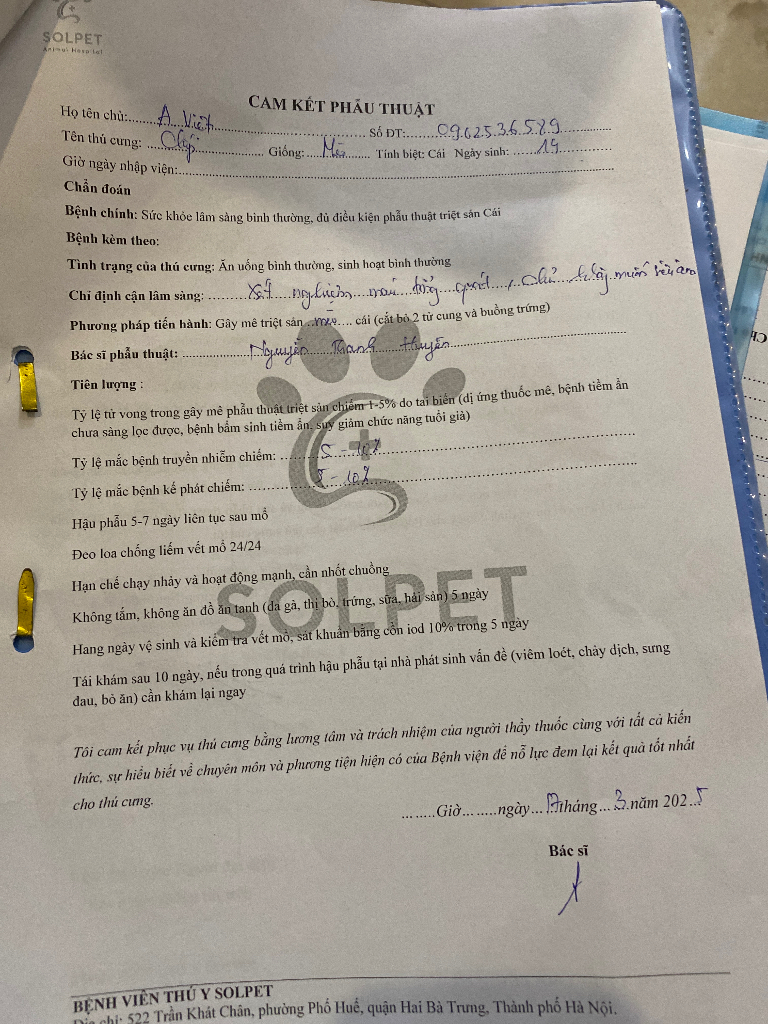 SOLPET
Animal Hospital
CAM KẾT PHẪU THUẬT
Họ tên chủ: A Việt Số ĐT: 0962536589
Tên thú cưng: Giống: Mèo Tính biệt: Cái Ngày sinh: 14
Giờ ngày nhập viện:
Chẩn đoán
Bệnh chính: Sức khỏe lâm sàng bình thường, đủ điều kiện phẫu thuật triệt sản Cái
Bệnh kèm theo:
Tình trạng của thú cưng: Ăn uống bình thường, sinh hoạt bình thường
Chỉ định cận lâm sàng: Xét nghiệm máu tổng quát, chủ muốn siêu âm
Phương pháp tiến hành: Gây mê triệt sản mèo cái (cắt bỏ 2 tử cung và buồng trứng)
Bác sĩ phẫu thuật: Nguyễn Thanh Huyền
Tiên lượng :
Tỷ lệ tử vong trong gây mê phẫu thuật triệt sản chiếm 1-5% do tai biến (dị ứng thuốc mê, bệnh tiềm ẩn
chưa sàng lọc được, bệnh bẩm sinh tiềm ẩn, suy giảm chức năng tuổi già)
Tỷ lệ mắc bệnh truyền nhiễm chiếm: 5-10%
Tỷ lệ mắc bệnh kế phát chiếm: 5-10%
Hậu phẫu 5-7 ngày liên tục sau mổ
Đeo loa chống liếm vết mổ 24/24
Hạn chế chạy nhảy và hoạt động mạnh, cần nhốt chuồng
Không tắm, không ăn đồ ăn tanh (da gà, thị bò, trứng, sữa, hải sản) 5 ngày
SOLPET
Hang ngày vệ sinh và kiểm tra vết mổ, sát khuẩn bằng cồn iod 10% trong 5 ngày
Tái khám sau 10 ngày, nếu trong quá trình hậu phẫu tại nhà phát sinh vấn đề (viêm loét, chảy dịch, sưng
đau, bỏ ăn) cần khám lại ngay
Tôi cam kết phục vụ thú cưng bằng lương tâm và trách nhiệm của người thầy thuốc cùng với tất cả kiến
thức, sự hiểu biết về chuyên môn và phương tiện hiện có của Bệnh viện để nỗ lực đem lại kết quả tốt nhất
cho thú cưng.
........Giờ........ngày...17tháng...3.năm 2025
Bác sĩ
BỆNH VIỆN THÚ Y SOLPET
Địa chỉ: 522 Trần Khát Chân, phường Phố Huế, quận Hai Bà Trưng, Thành phố Hà Nội.